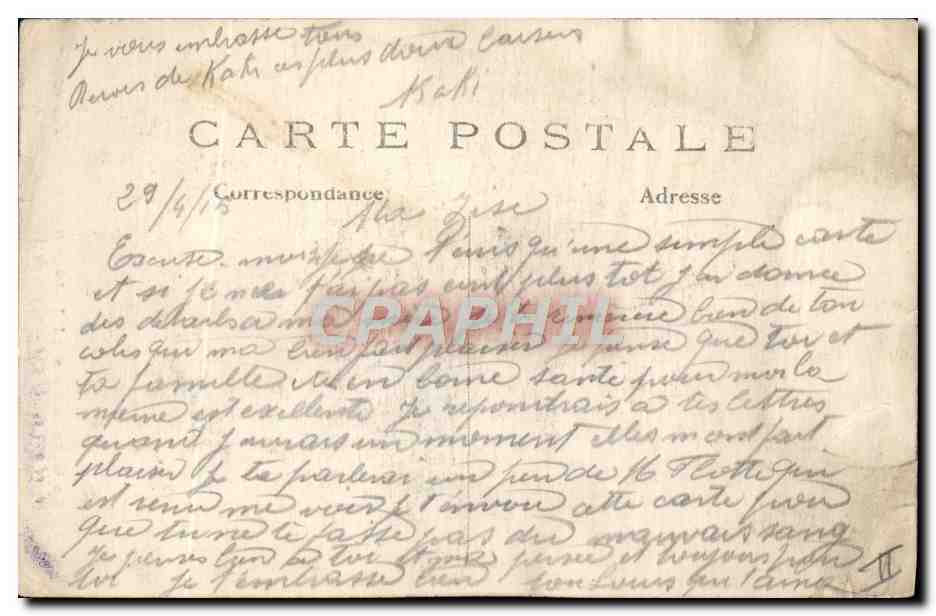 Je vous embrasse tous
de Kaki ces plus doux baisers
Kaki
CARTE POSTALE
29/4/15 Correspondance Adresse
Ma Zise
Excuse-moi si je qu'une simple carte
et si je ne t'ai pas écrit plus tot j'ai donnée
des details a ma bien de ton
colis qui ma bien fait plaisir je pense que toi et
ta famille etes en bonne santé pour moi la
meme est exellente. Je repondrais a tes lettres
quant j'aurais un moment elles mont fait
plaisir Je te parlerai un peu de Mr Flotte qui
est venu me voir je t'envoie cette carte pour
que tu ne te fasse pas du mauvais sang
Je penses bien a toi et ma pensée et toujours pour
toi je t'embrasse bien ton Louis qui t'aime
II
CPAPHIL